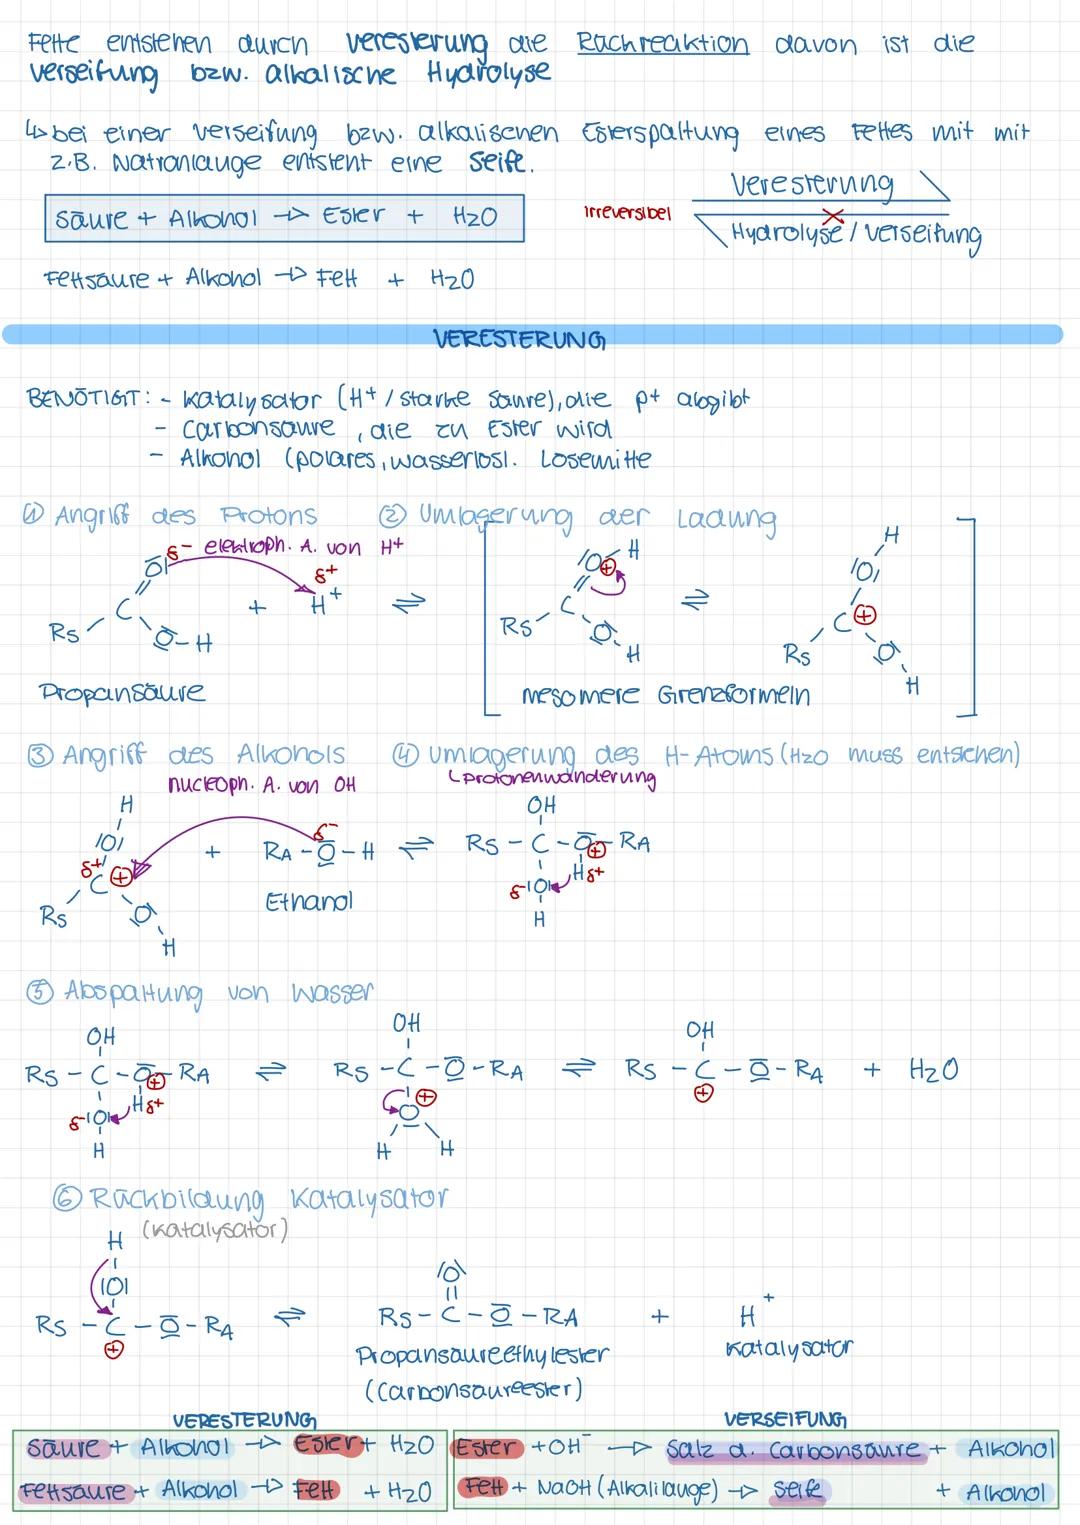 Fette entstehen durch Veresterung die Rückreaktion davon ist die
Verseifung bzw. alkalische Hydrolyse
↳ bei einer Verseifung bzw. alkalischen Esterspaltung eines Fettes mit mit
z.B. Natronlauge entsteht eine Seife.
Säure + Alkohol → Ester + H2O
irreversibel
Veresterung
Hydrolyse / Verseifung
Fettsäure + Alkohol → Fett + H2O
VERESTERUNG
BENÖTIGT: - Katalysator (H+ / starke Säure), die p+ abgibt
- Carbonsäure, die zu Ester wird
- Alkohol (polares, wasserlösl. Lösemitte
① Angriff des Protons ② Umlagerung der Ladung
δ- elektroph. A. von H+
δ+
|O| + H+ ⇌
C
Rs O-H
|O⊕ H ⇌ H |O|
C C⊕
Rs O H Rs O H
Propansäure
mesomere Grenzformeln
③ Angriff des Alkohols ④ Umlagerung des H-Atoms (H2O muss entstehen)
nucleoph. A. von OH
↳ Protonenwanderung
H OH
|O| + RA - O - H ⇌ Rs - C - O⊕ - RA
δ+ C ⊕ δ-
Ethanol
δ- |O| H δ+
Rs O H
H
⑤ Abspaltung von Wasser
OH OH OH
Rs - C - O⊕ - RA ⇌ Rs - C - O - RA ⇌ Rs - C - O - RA + H2O
δ- |O| H δ+ O ⊕ ⊕
H H H
⑥ Rückbildung Katalysator
H (Katalysator)
|O| |O|
Rs - C - O - RA ⇌ Rs - C - O - RA + H+
⊕
Propansäureethylester Katalysator
(Carbonsäureester)
VERESTERUNG
Säure + Alkohol → Ester + H2O
Fettsäure + Alkohol → Fett + H2O
VERSEIFUNG
Ester + OH- → Salz d. Carbonsäure + Alkohol
Fett + NaOH (Alkalilauge) → Seife + Alkohol